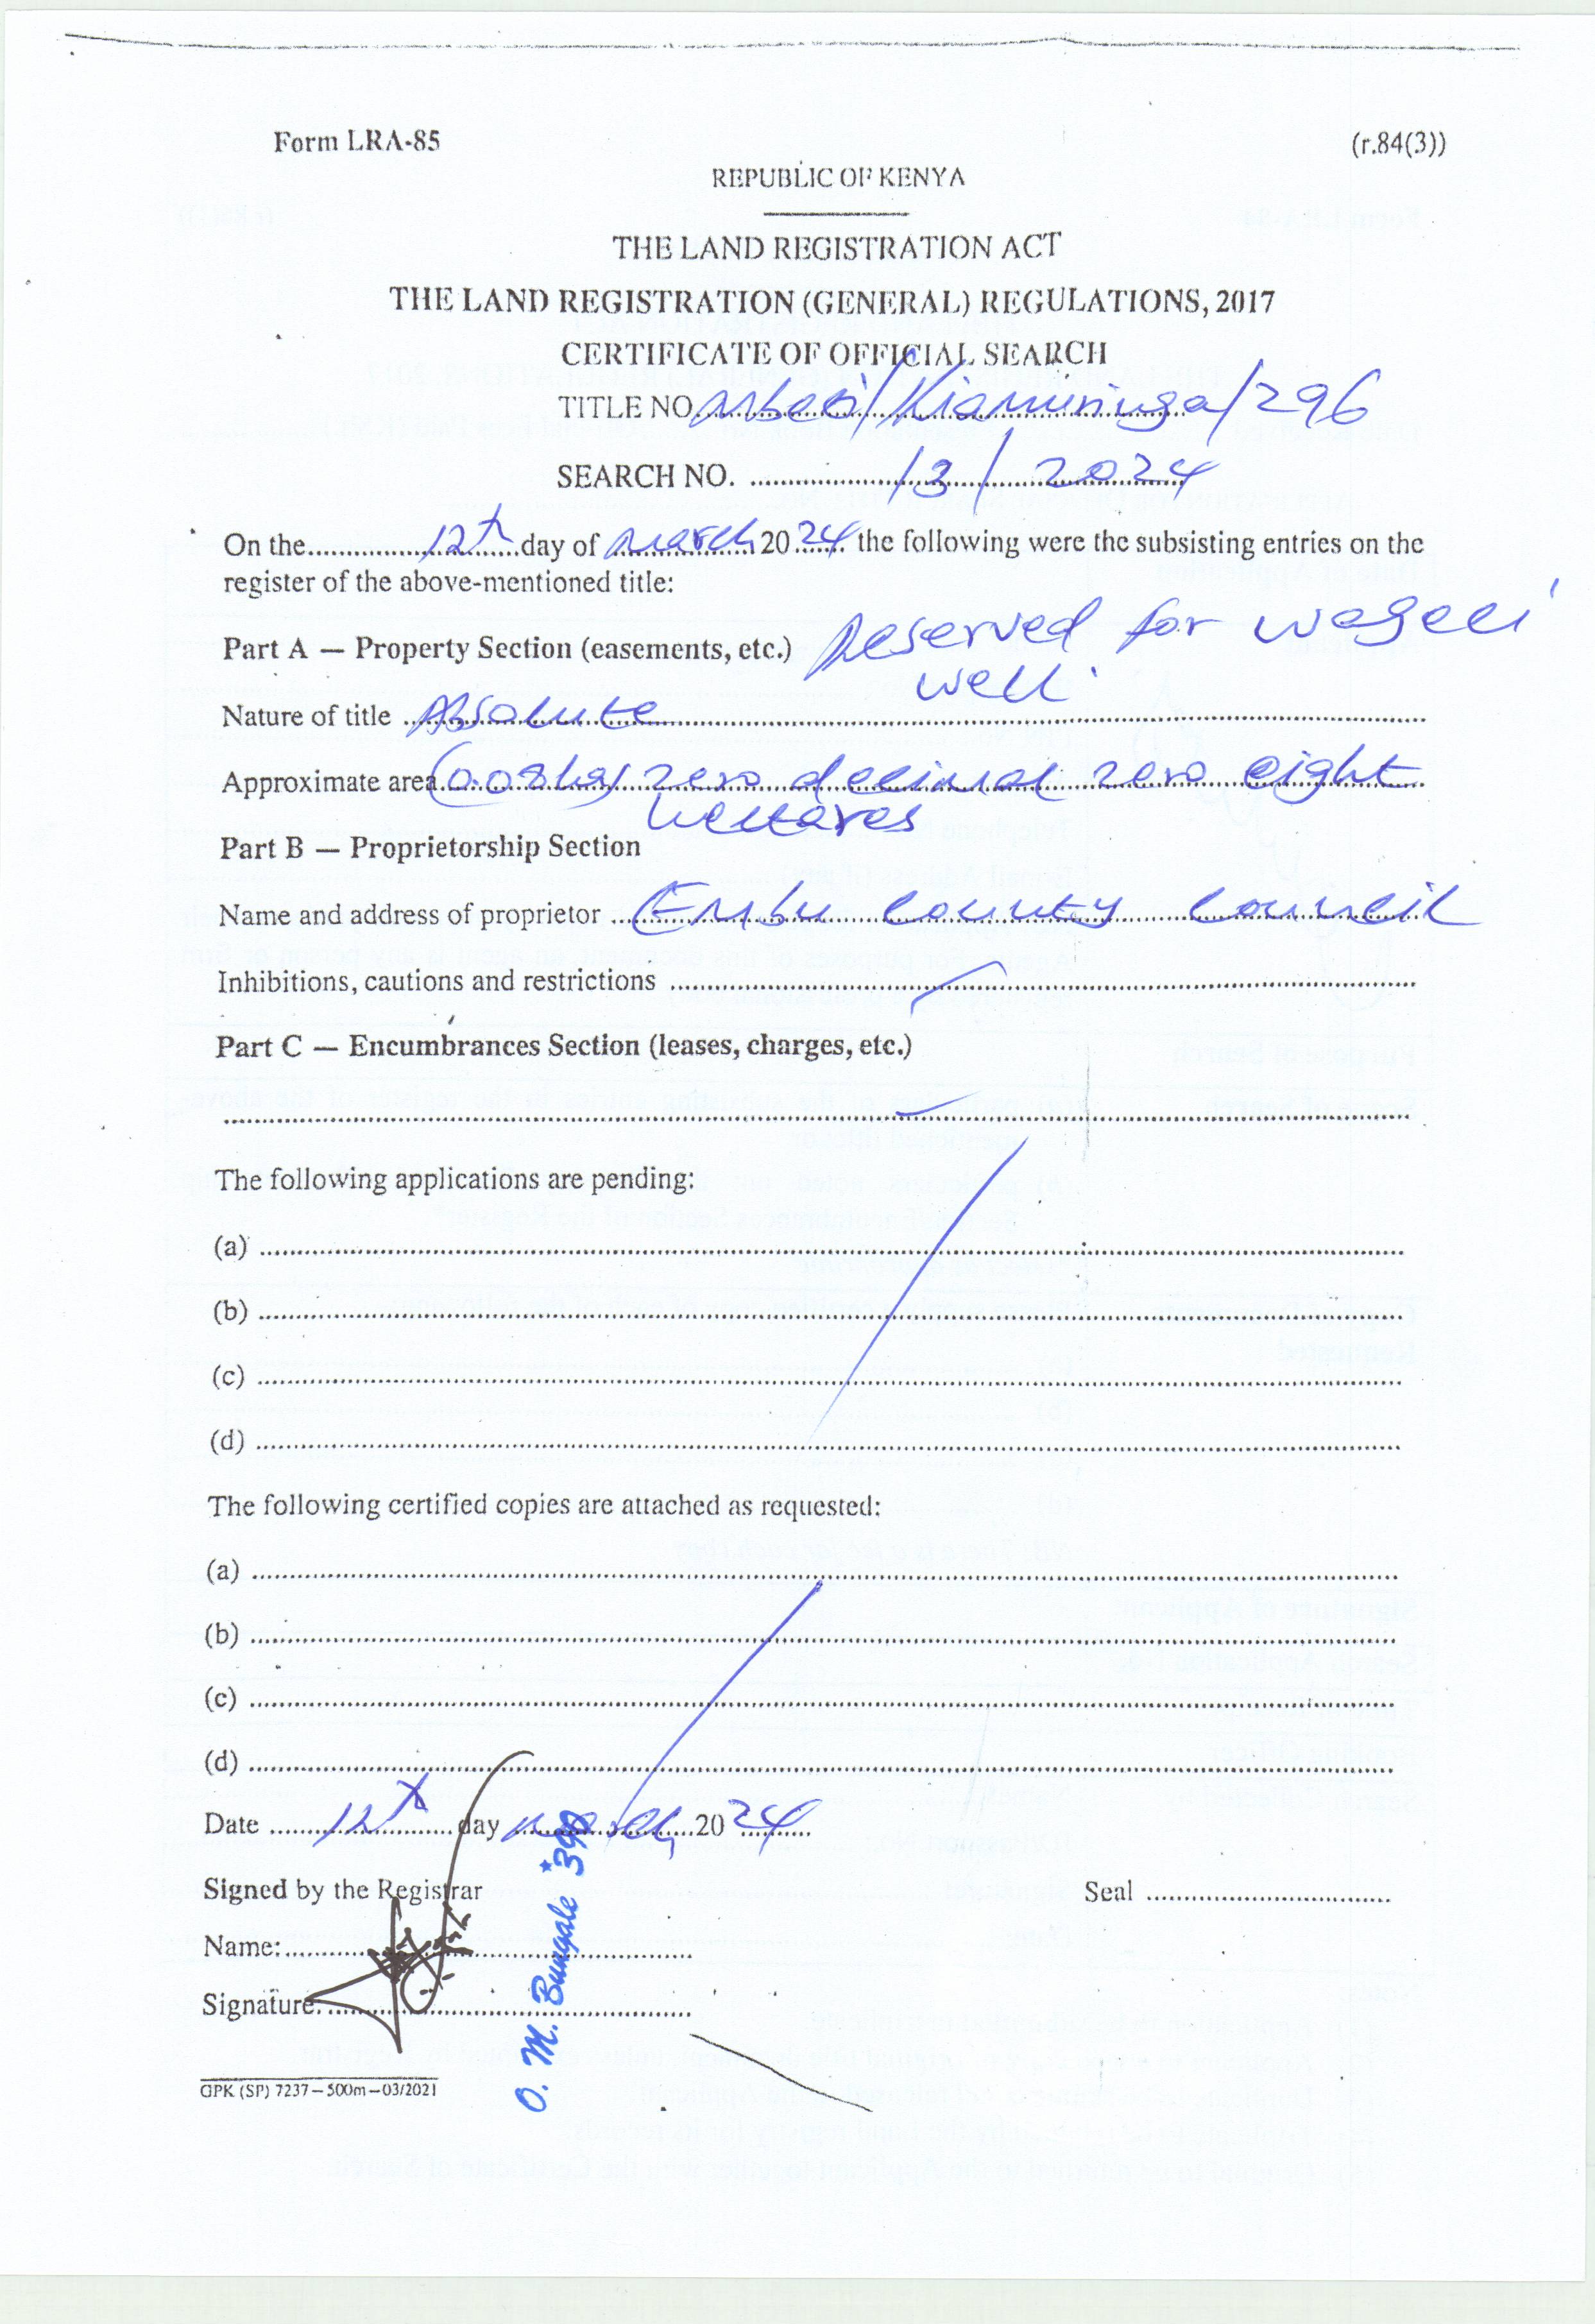 Form LRA-85 (r.84(3))
REPUBLIC OF KENYA
THE LAND REGISTRATION ACT
THE LAND REGISTRATION (GENERAL) REGULATIONS, 2017
CERTIFICATE OF OFFICIAL SEARCH
TITLE NO. Mbeti/Kiamuringa/296
SEARCH NO. ........................ /3/2024
On the.....................12th.......day of ..March.. 20 24 the following were the subsisting entries on the
register of the above-mentioned title:
Part A — Property Section (easements, etc.) Reserved for
well
Nature of title ..Absolute..............................
Approximate area (0.08ha) zero decimal zero eight
hectares
Part B — Proprietorship Section
Name and address of proprietor ... Embu County Council
Inhibitions, cautions and restrictions ..............................
Part C — Encumbrances Section (leases, charges, etc.)
..............................
The following applications are pending:
(a) ..............................
(b) ..............................
(c) ..............................
(d) ..............................
The following certified copies are attached as requested:
(a) ..............................
(b) ..............................
(c) ..............................
(d) ..............................
Date ......12th......day March 20 24
Signed by the Registrar Seal ..............................
Name:..............................
Signature:..............................
O. M. Bungale *390
GPK (SP) 7237—500m—03/2021